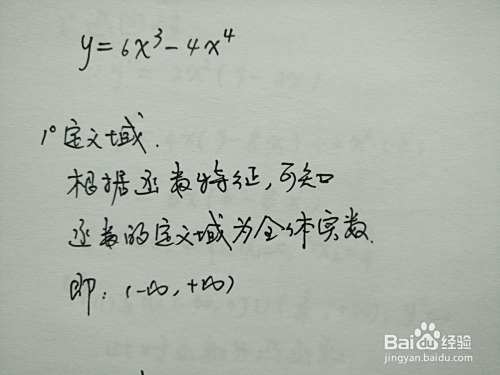 y=6x³-4x⁴
1°定义域.
根据函数特征,可知
函数的定义域为全体实数.
即:(-∞,+∞)
Baidu经验
jingyan.baidu.com